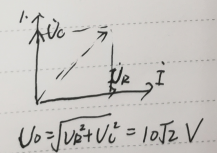 1.
U̇c
U̇R
İ
U0=√(UR²+Uc²)=10√2 V